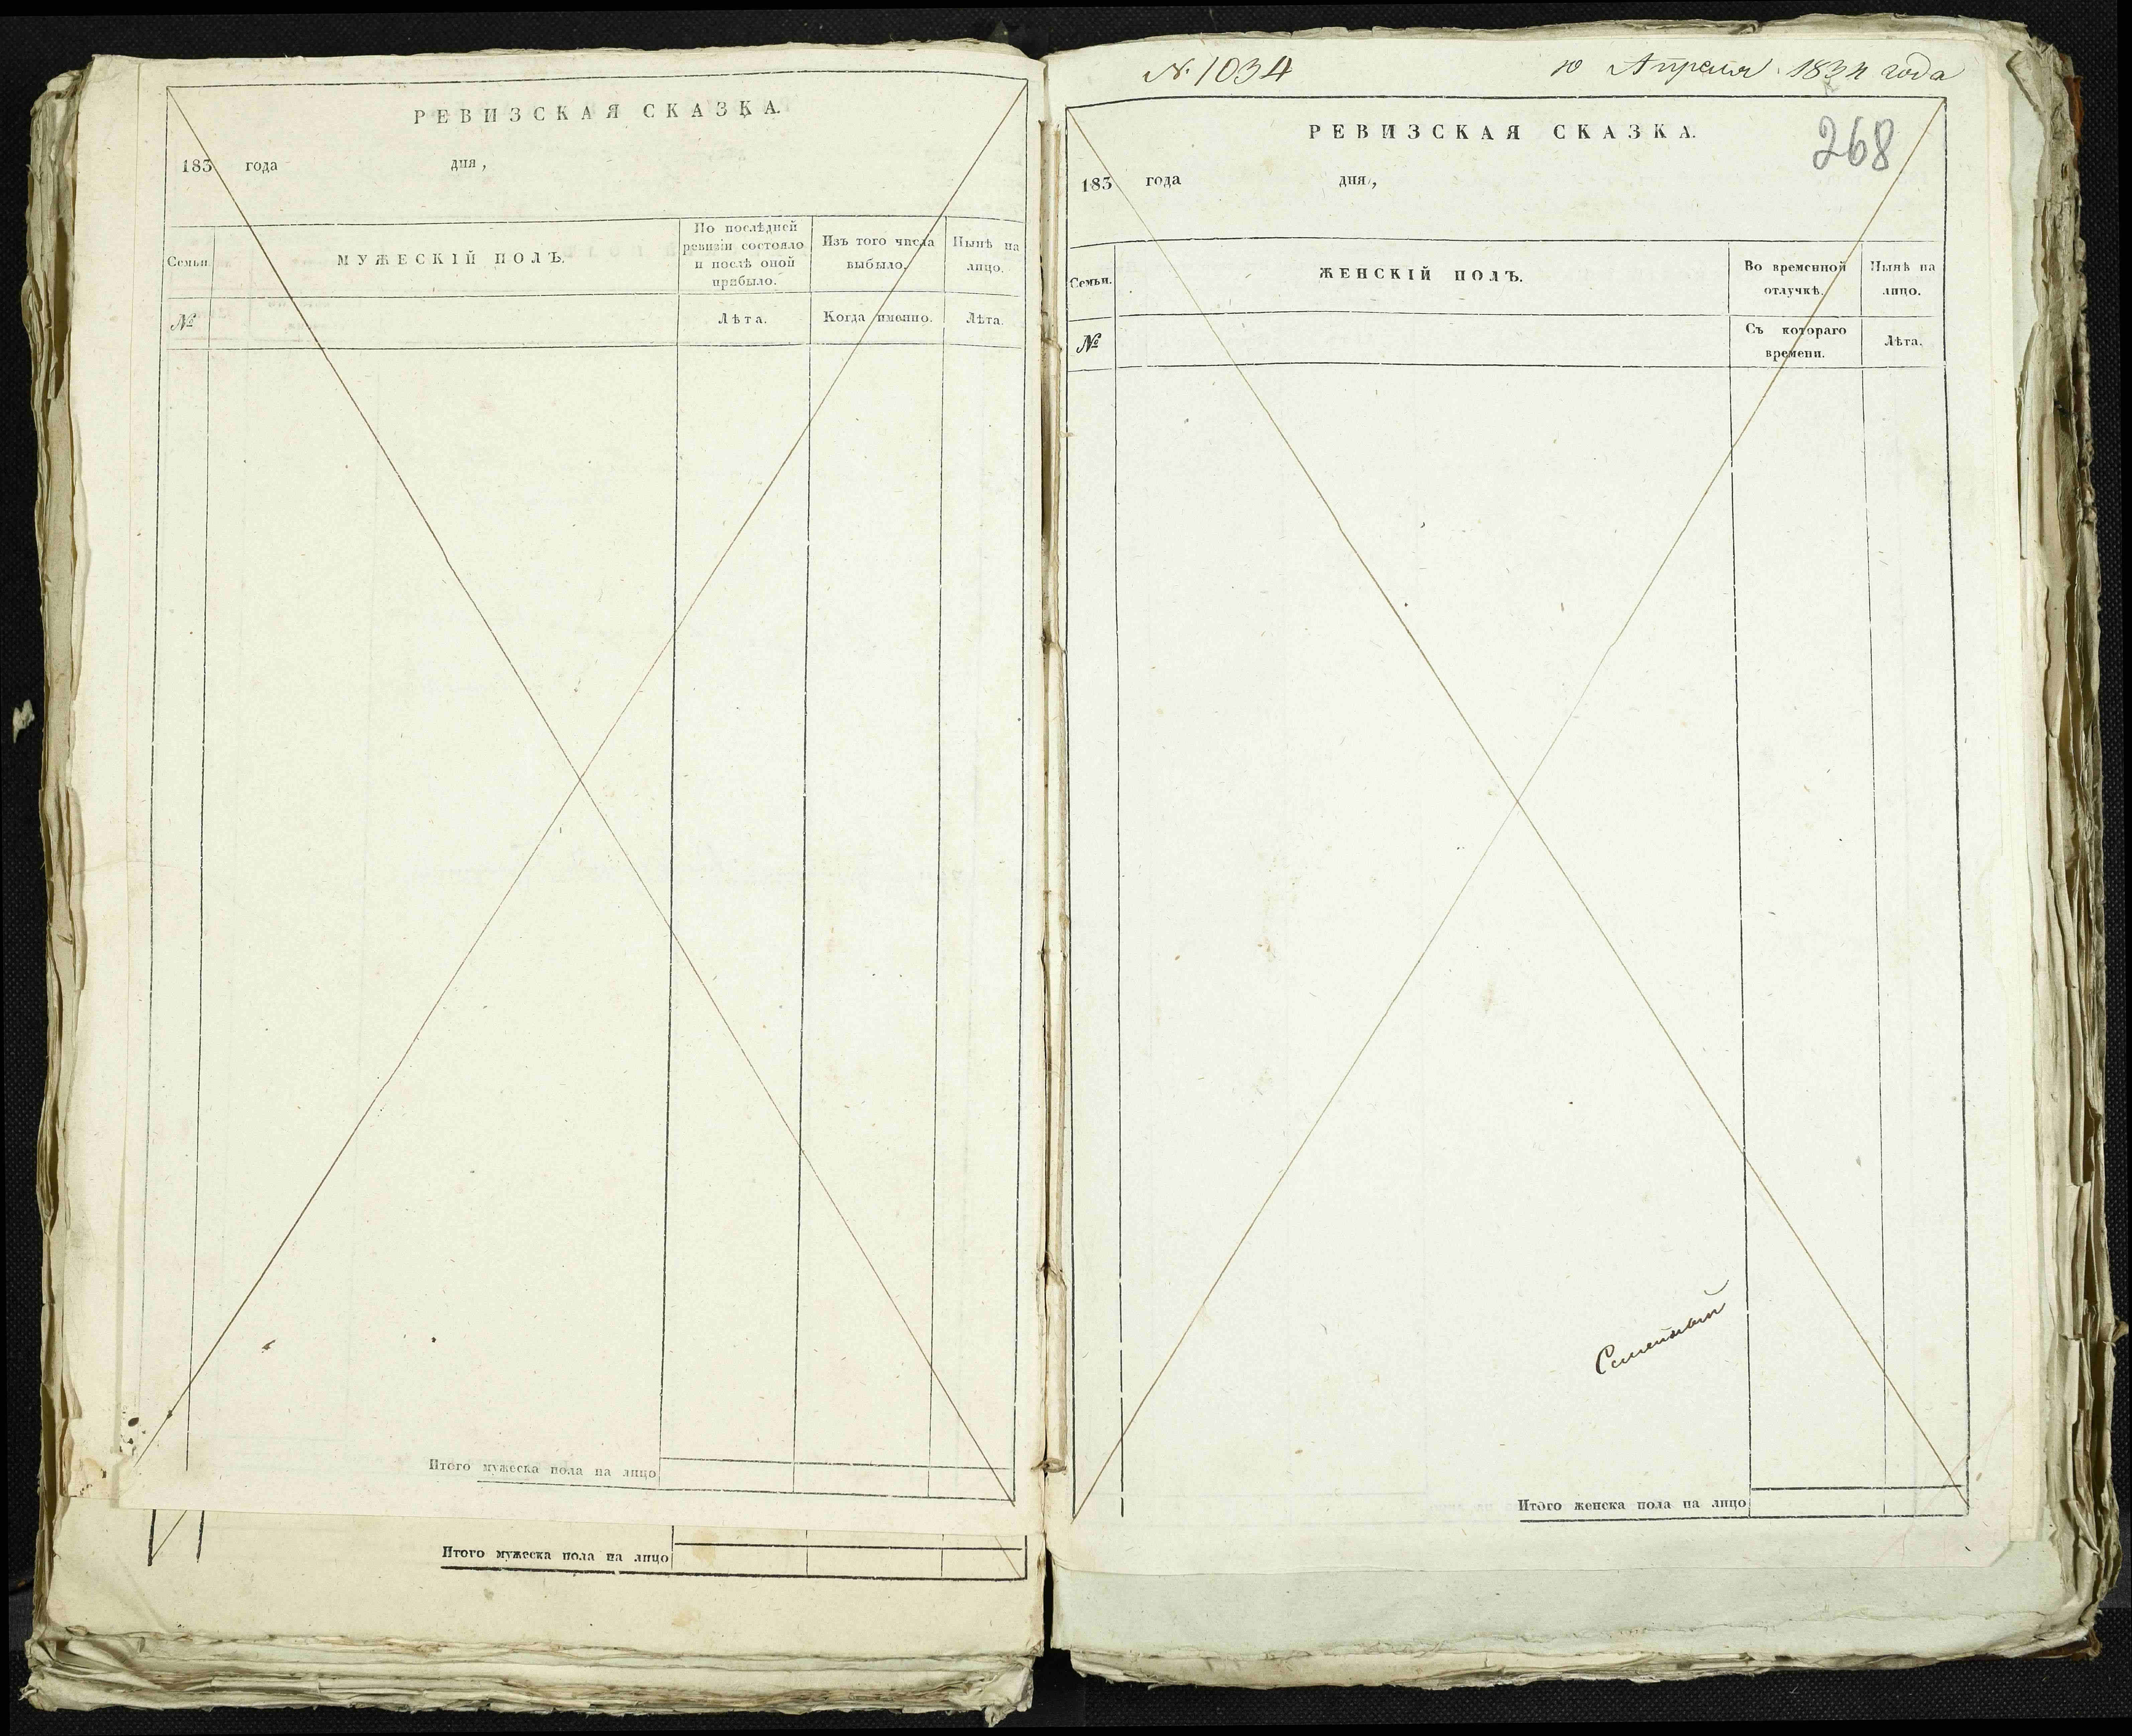 РЕВИЗСКАЯ СКАЗКА.
183 года дня,
Семьи. МУЖЕСКІЙ ПОЛЪ. По послѣдней ревизіи состояло и послѣ оной прибыло. Изъ того числа выбыло. Нынѣ на лицо.
№ Лѣта. Когда именно. Лѣта.
Итого мужеска пола на лицо
Итого мужеска пола на лицо
№ 1034 10 Апреля 1834 года
РЕВИЗСКАЯ СКАЗКА. 268
183 года дня,
Семьи. ЖЕНСКІЙ ПОЛЪ. Во временной отлучкѣ. Нынѣ на лицо.
№ Съ котораго времени. Лѣта.
Итого женска пола на лицо